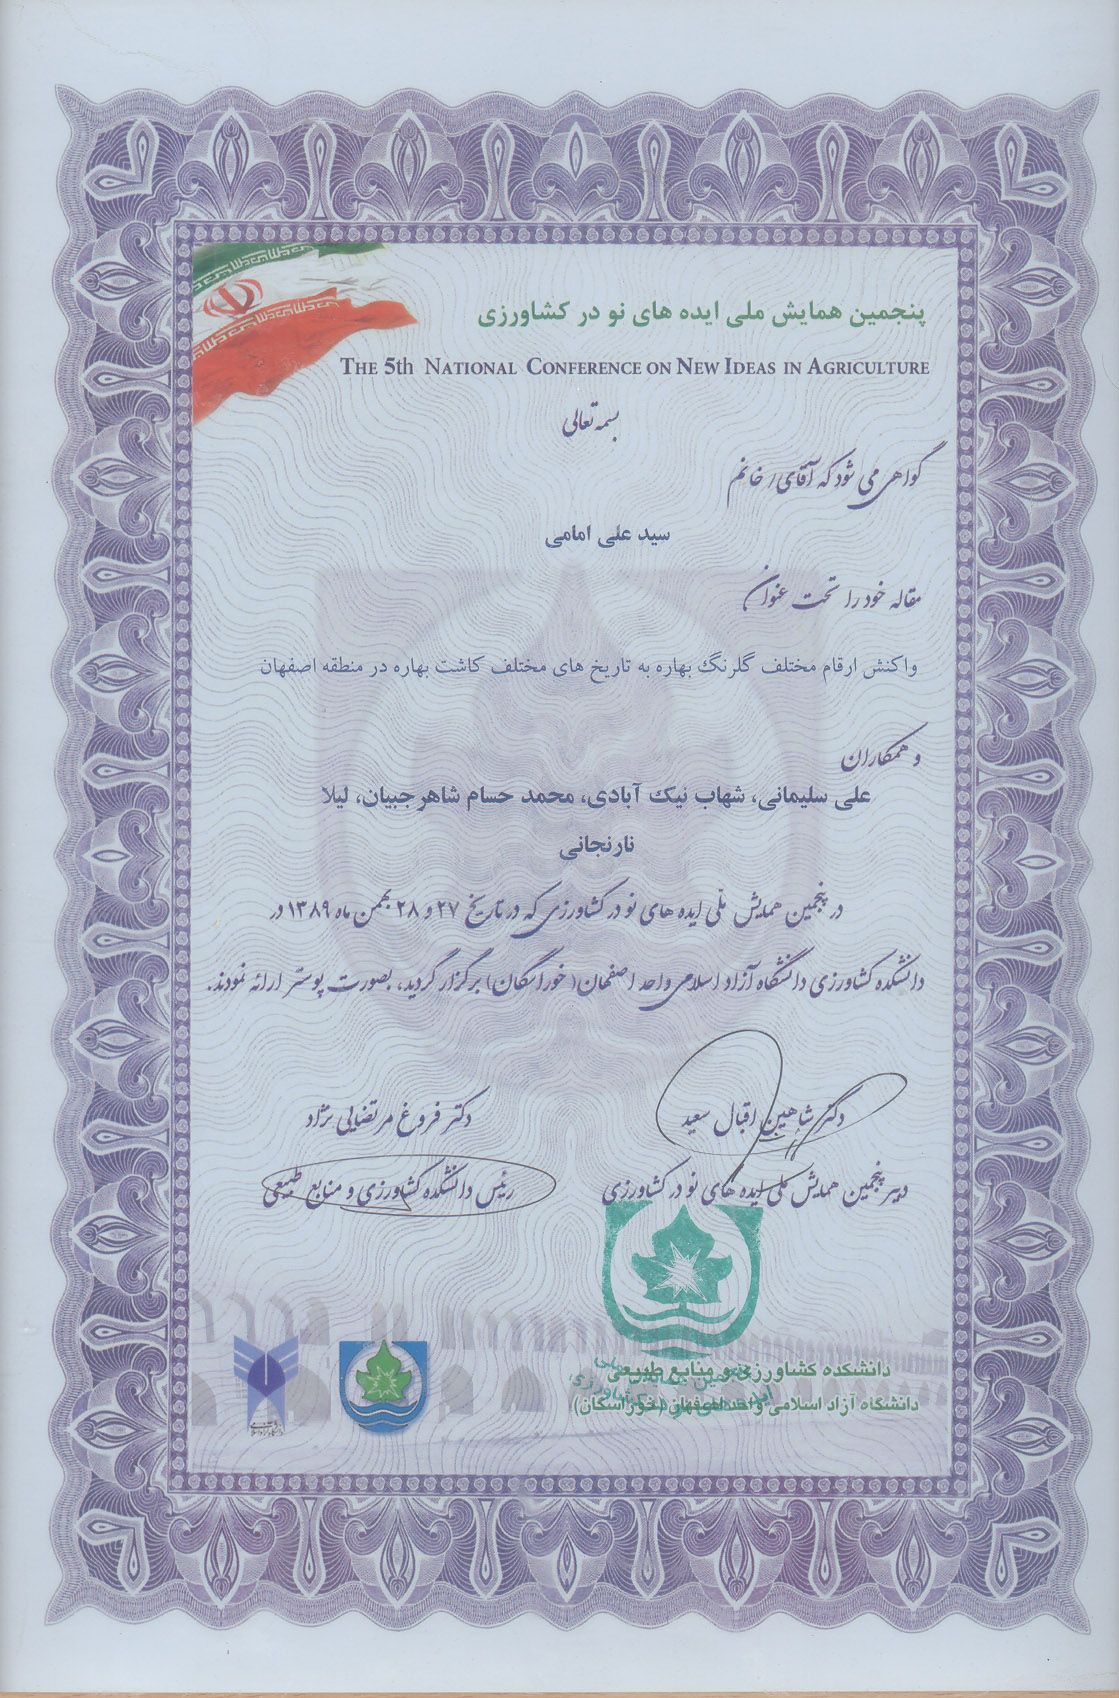 پنجمین همایش ملی ایده های نو در کشاورزی
THE 5th NATIONAL CONFERENCE ON NEW IDEAS IN AGRICULTURE
بسمه تعالی
گواهی می شود که آقای/ خانم
سید علی امامی
مقاله خود را تحت عنوان
واکنش ارقام مختلف گلرنگ بهاره به تاریخ های مختلف کاشت بهاره در منطقه اصفهان
و همکاران
علی سلیمانی، شهاب نیک آبادی، محمد حسام شاهرجبیان، لیلا
نارنجانی
در پنجمین همایش ملّی ایده های نو در کشاورزی که در تاریخ ۲۷ و ۲۸ بهمن ماه ۱۳۸۹ در
دانشکده کشاورزی دانشگاه آزاد اسلامی واحد اصفهان( خوراسگان) برگزار گردید، بصورت پوستر ارائه نمودند.
دکتر شاهین اقبال سعید
دبیر پنجمین همایش ملی ایده های نو در کشاورزی
دکتر فروغ مرتضایی نژاد
رئیس دانشکده کشاورزی و منابع طبیعی
دانشکده کشاورزی و منابع طبیعی
دانشگاه آزاد اسلامی واحد اصفهان (خوراسگان)